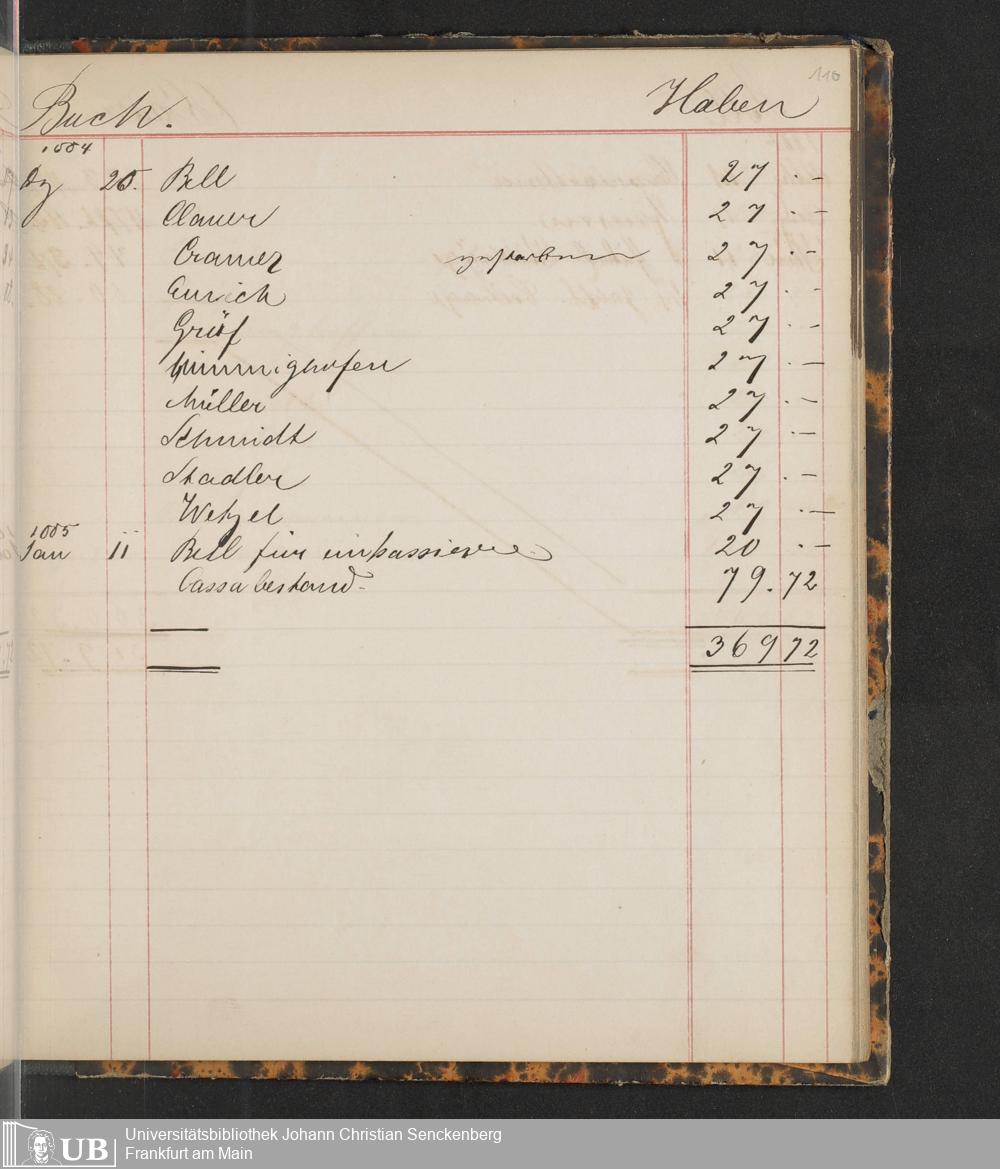 110
Buch. Haben
1884
Dz 25. Bell 27 . —
Clauer 27 . —
Cramer gestorben 27 . —
Emrich 27 . —
Gräf 27 . —
Himmighofen 27 . —
Müller 27 . —
Schmidt 27 . —
Stadler 27 . —
Wetzel 27 . —
1885
Jan 11 Bell für einkassieren 20 . —
Cassabestand 79. 72
369 72
UB Universitätsbibliothek Johann Christian Senckenberg
Frankfurt am Main